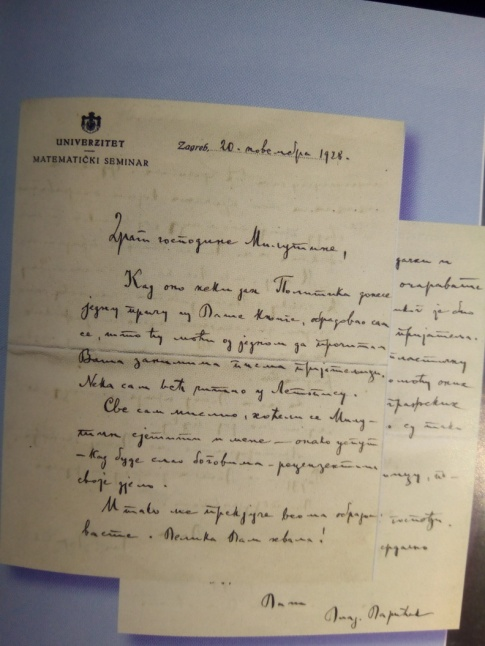 UNIVERZITET
MATEMATIČKI SEMINAR
Zagreb, 20. новембра 1928.
Драги господине Милутине,
Кад оно неки дан Политика донесе
једну причу из Ваше књиге, обрадовао сам
се, што ћу моћи од једном да прочитам
Ваша занимљива писма пријатељици.
Нека сам већ читао у Летопису.
Све сам мислио, хоћели се Милу-
тин сјетити и мене — онако успут
— кад буде слао боговима - рецензентима
своје дјело.
И тако ме прекјуче веома обрадо-
васте. Велика Вам хвала!
очаравате
је био
пријатеља.
Ваш
Влад. Варићак